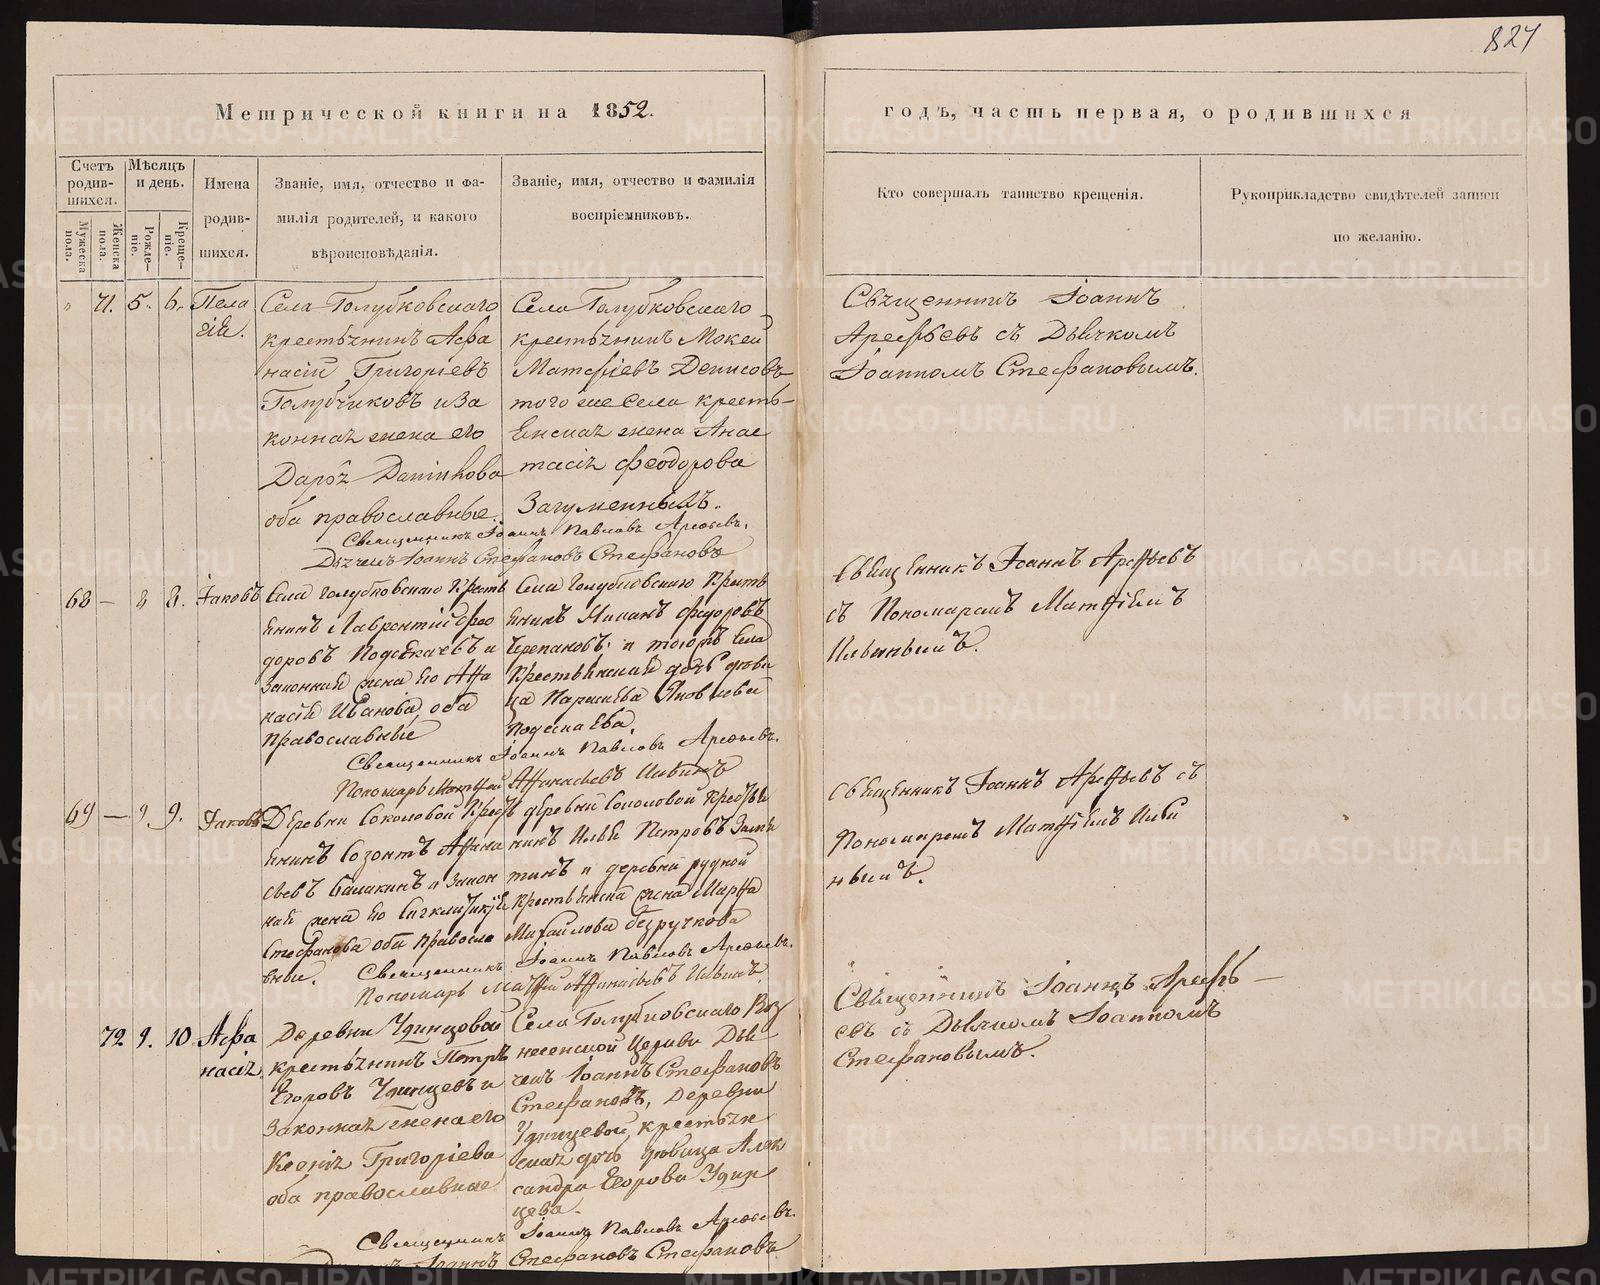 827
Метрической книги на 1852.
годъ, часть первая, о родившихся
Счетъ родившихся.
Мѣсяцъ и день.
Имена родившихся.
Званіе, имя, отчество и фамилія родителей, и какого вѣроисповѣданія.
Званіе, имя, отчество и фамилія воспріемниковъ.
Кто совершалъ таинство крещенія.
Рукоприкладство свидѣтелей записи по желанію.
Мужеска пола.
Женска пола.
Рожденіе.
Крещеніе.
71. 5. 6. Пела
гія.
Села Голубковскаго
крестьянинъ Афа
насій Григоріевъ
Голубчиковъ иЗа
конная жена его
Дарья
оба православные.
Села Голубковскаго
крестьянинъ Мокей
Матфіевъ Денисовъ
того же Села кресть-
янская жена Анас
тасія Феодорова
Загуменныхъ.
Священникъ Іоаннъ
Арефьевъ съ Дьячкомъ
Іоанномъ Стефановымъ.
Священникъ Іоаннъ Павловъ Арефьевъ.
Дьячекъ Іоаннъ Стефановъ Стефановъ
68 — 8 8. Іаковъ
Села Голубковскаго Кресть
янинъ Лаврентій Фео
доровъ Подскачевъ и
Законная жена его Афа
насія Иванова, оба
православные
Села Голубковскаго Кресть
янинъ Феодоровъ
Черепановъ и тогожъ Села
Крестьянская дочь дѣви
ца Яковлева
Священникъ Іоаннъ Арефьевъ
съ Пономаремъ Матфіемъ
Ильинымъ.
Священникъ Іоаннъ Павловъ Арефьевъ.
Пономарь Матфей Афанасьевъ Ильинъ
69 — 9 9. Іаковъ
Деревни Соколовой Кресть
янинъ Созонтъ Афана
сьевъ и Закон
ная жена его Сигклитикія
Стефанова оба правосла
вные.
деревни Соколовой Кресть
нинъ Илья Петровъ Замя
тинъ и деревни рудной
Крестьянская жена Марфа
Михайлова безручкова
Священникъ Іоаннъ Арефьевъ съ
Пономаремъ Матфіемъ Ильи
нымъ.
Священникъ Іоаннъ Павловъ Арефьевъ.
Пономарь Матфей Афанасьевъ Ильинъ
72 9. 10 Афа
насія.
Деревни Удинцовой
крестьянинъ Петръ
Егоровъ Удинцевъ и
Законная жена его
Ксенія Григоріева
оба православные
Села Голубковскаго Воз
несенской Церкви Дья
чекъ Іоаннъ Стефановъ
Стефановъ, Деревни
Удинцевой крестьян
ская дочь дѣвица Алек
сандра Егорова Удин
цева.
Священникъ Іоаннъ Арефь-
евъ съ Дьячкомъ Іоанномъ
Стефановымъ.
Священникъ Іоаннъ Павловъ Арефьевъ.
Іоаннъ Стефановъ Стефановъ